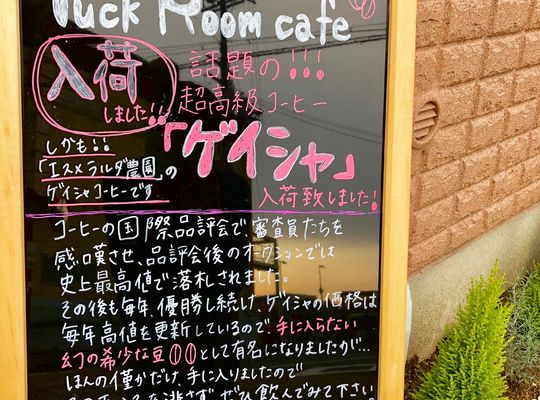 Room cafe
入荷
しました!!
話題の!!!
超高級コーヒー
「ゲイシャ」
しかも!!
「エスメラルダ農園」の
ゲイシャコーヒーです
入荷致しました!
コーヒーの国際品評会で、審査員たちを
感嘆させ、品評会後のオークションでは
史上最高値で落札されました。
その後も毎年、優勝し続け、ゲイシャの価格は
毎年高値を更新しているので、手に入らない
幻の希少な豆として有名になりましたが…
ほんの僅かだけ、手に入りましたので
逃さず ぜひ飲んでみて下さい。